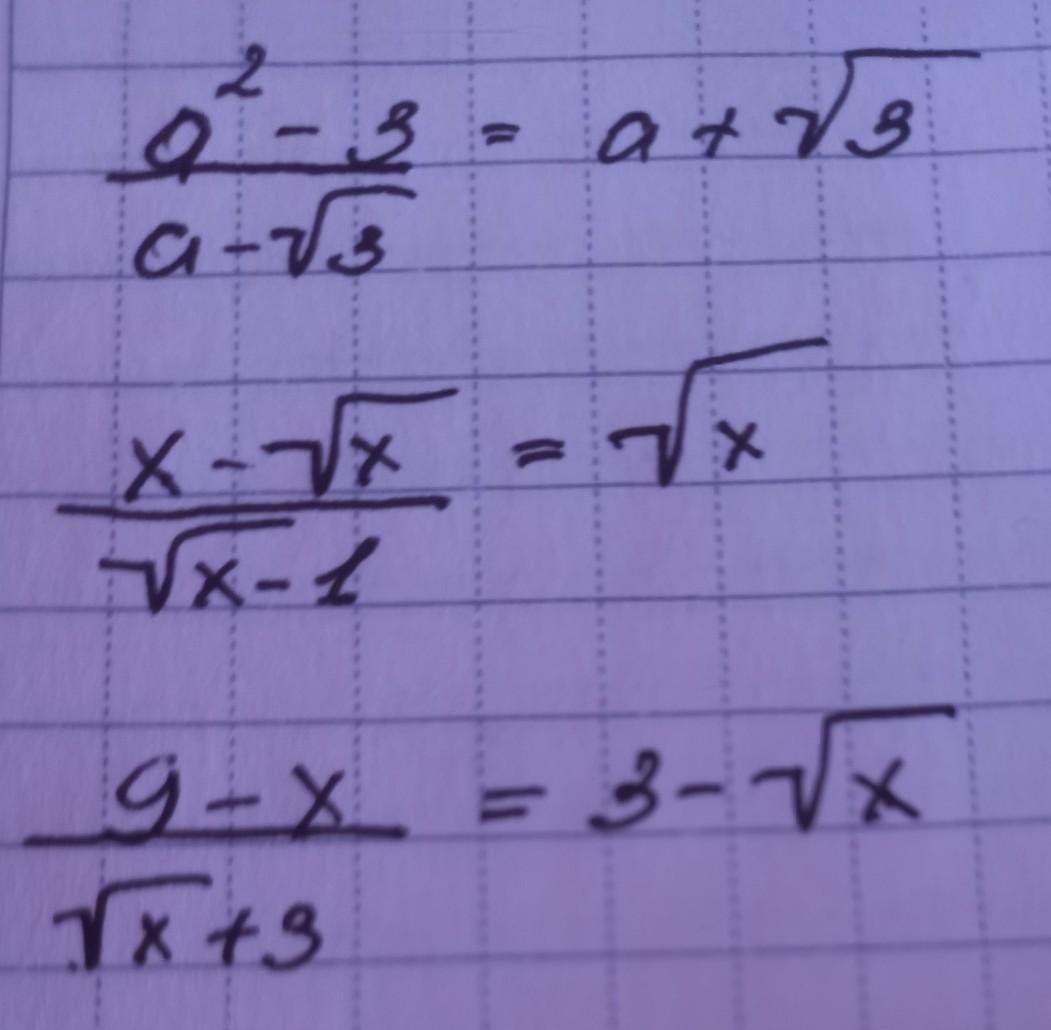 (a² - 3)/(a - √3) = a + √3
(x - √x)/(√x - 1) = √x
(9 - x)/(√x + 3) = 3 - √x